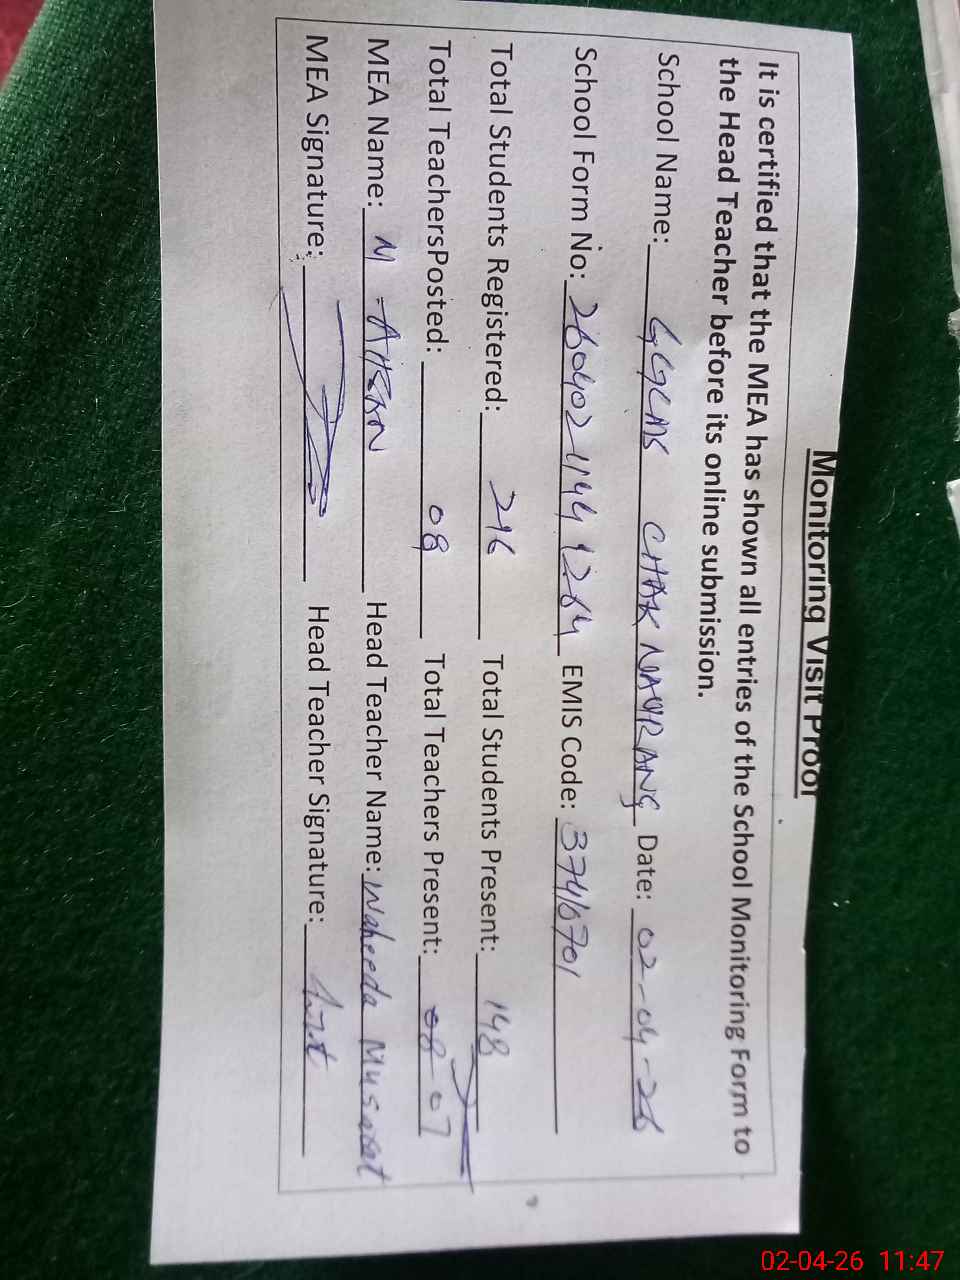 Monitoring Visit Proof
It is certified that the MEA has shown all entries of the School Monitoring Form to
the Head Teacher before its online submission.
School Name: GGCMS CHAK NAURANG Date: 02-04-26
School Form No: 260402 1144 1264 EMIS Code: 37410701
Total Students Registered: 216 Total Students Present: 148
Total TeachersPosted: 08 Total Teachers Present: 08 07
MEA Name: M Head Teacher Name: Waheeda Musarat
MEA Signature: Head Teacher Signature:
02-04-26 11:47